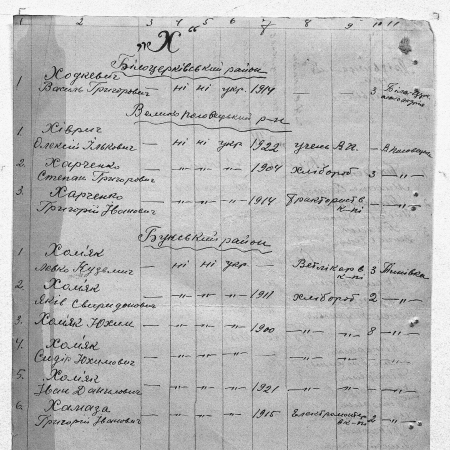 1 2 3 4 5 6 7 8 9 10 11
"Х"
Білоцерківський район
1 Ходкевич
Василь Григорович — ні ні укр. 1914 — — 3 Біла
Велико половецький р-н
1 Хіврич
Олексій Ількович — ні ні укр 1922 учень —
2. Харченко
Степан Григорович — " — " — " — 1904 хлібороб 3 — " —
3. Харченко
Григорій Іванович — " — " — " — 1914 Тракторист в
к-пі — " —
Букський район
1 Хом'як
Левко Кузьмич — ні ні укр — Ветлікар в 3
к-пі
2. Хом'як
Яків Свиридонович — " — " — " — 1911 хлібороб 2 — " —
3. Хом'як Юхим — " — " — " — 1900 — " — 8 — " —
4. Хом'як
Сидір Юхимович — " — " — " — " —
5. Хом'як
Іван Данилович — " — " — " — 1921 — " — " —
6. Хамаза
Григорій Іванович — " — " — " — 1915 Електромонтер 2 — " —
в к-пі